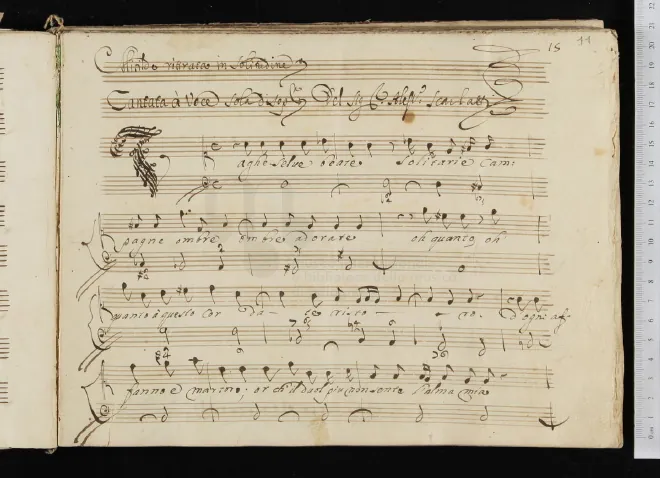 15 11
Clori ritirata in Solitudine
Cantata à Voce Sola di Sop.º Del Sig.r C. Aless.º Scarlatti
Vaghe Selve beate Solitarie Cam:
pagne ombre ombre adorate oh quanto, oh
quanto à questo Cor da- te ristoro. D'ogni aff
fanno e martiro; or ch'il duol più non sente l'alma mia